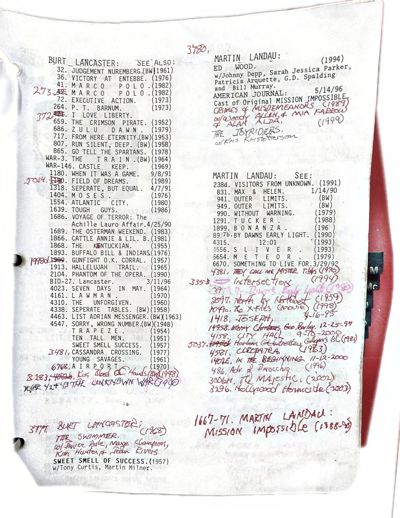 3780.
BURT LANCASTER: SEE ALSO:
32. JUDGEMENT NUREMBERG.(BW)(1961)
36. VICTORY AT ENTEBBE. (1976)
41. MARCO POLO. (1982)
42. MARCO POLO. (1982)
72. EXECUTIVE ACTION. (1973)
264. P. T. BARNUM. (1973)
I LOVE LIBERTY.
659. THE CRIMSON PIRATE. (1952)
686. ZULU DAWN. (1979)
717. FROM HERE ETERNITY.(BW)(1953)
807. RUN SILENT, DEEP. (BW)(1958)
865. GO TELL THE SPARTANS. (1978)
WAR-3. THE TRAIN.(BW)(1964)
WAR-146. CASTLE KEEP. (1969)
1180. WHEN IT WAS A GAME. 9/8/91
FIELD OF DREAMS. (1989)
1318. SEPERATE, BUT EQUAL. 4/7/91
1404. MOSES. (1976)
1554. ATLANTIC CITY. (1980)
1639. TOUGH GUYS. (1986)
1686. VOYAGE OF TERROR: The
Achille Lauro Affair.
1689. THE OSTERMAN WEEKEND. (1983)
1866. CATTLE ANNIE & LIL. B.(1981)
1868. THE KENTUCKIAN.
1893. BUFFALO BILL & INDIANS(1976)
GUNFIGHT O.K. CORRAL. (1957)
1913. HALLELUJAH TRAIL. (1965)
2104. PHANTOM OF THE OPERA. (1990)
BIO-27. Lancaster. 3/11/96
4023 SEVEN DAYS IN MAY. (1964)
4161. LAWMAN. (1970)
4310. THE UNFORGIVEN. (1960)
4338. SEPERATE TABLES.(BW) (1958)
4463. LIST ADRIAN MESSENGER.(BW)
4547. SORRY, WRONG NUMBER.(BW)(1948)
TRAPEZE. (1954)
TEN TALL MEN. (1951)
SWEET SMELL SUCCESS. (1957)
3481. CASSANDRA CROSSING. (1977)
YOUNG SAVAGES. (1961)
AIRPORT. (1970)
THE UNKNOWN WAR
3771. BURT LANCASTER:
THE SWIMMER. (1968)
SWEET SMELL OF SUCCESS.(1957)
w/Tony Curtis, Martin Milner.
MARTIN LANDAU: (1994)
ED WOOD.
w/Johnny Depp, Sarah Jessica Parker,
Patricia Arquette, G.D. Spalding
and Bill Murray.
AMERICAN JOURNAL: 5/14/96
Cast of Original MISSION IMPOSSIBLE.
CRIMES & MISDEMEANORS (1989)
w/WOODY ALLEN, & MIA FARROW
& ALAN ALDA.
THE JOYRIDERS. (1999)
w/Kris Kristofferson
MARTIN LANDAU: SEE:
2384. VISITORS FROM UNKNOWN. (1991)
831. MAX & HELEN. 1/14/90
941. OUTER LIMITS. (BW)
949. OUTER LIMITS. (BW)
990. WITHOUT WARNING. (1979)
1291. TUCKER. (1988)
1899. BONANZA. (196
BY DAWNS EARLY LIGHT. (1990)
4315. 12:01 (1993)
SLIVER. (1993)
5654. METEOR. (1979)
6670. SOMETHING TO LIVE FOR.3/29/92
4381. THEY CALL ME MISTER TIBBS (1970)
INTERSECTION (1994)
3097. North by Northwest (1959)
THE X-FILES (1998)
1418. JOSEPH.
CITY HALL
4587. CLEOPATRA (1963)
IN THE BEGINNING. 11-12-2000
THE MAJESTIC. (2001)
8296. Hollywood Homicide (2003)
1667-71. MARTIN LANDAU:
MISSION Impossible (1988-90)